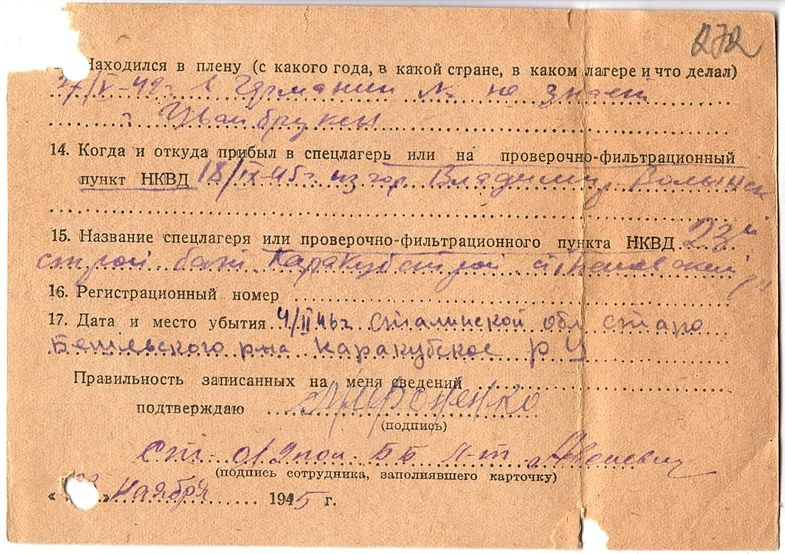 272
Находился в плену (с какого года, в какой стране, в каком лагере и что делал)
в Германии № не знает
14. Когда и откуда прибыл в спецлагерь или на проверочно-фильтрационный
пункт НКВД 18/IX-45г из гор. Владимир Волынск
15. Название спецлагеря или проверочно-фильтрационного пункта НКВД 23"
строй бат Каракубстрой
16. Регистрационный номер
17. Дата и место убытия 4/II 46г Сталинской обл старо
Бешевского р-на Каракубское р
Правильность записанных на меня сведений
подтверждаю
(подпись)
Ст. л-т
(подпись сотрудника, заполнявшего карточку)
« » Ноября 1945 г.